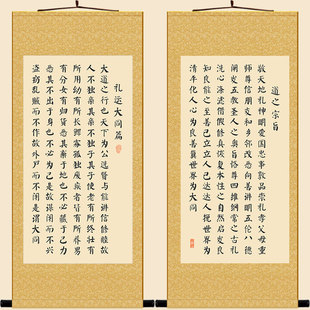 道之宗旨
敬天地礼神明爱国忠事敦品崇礼孝父母重
师尊信朋友和乡邻改恶向善讲明五伦八德
阐发五教圣人之奥旨恪遵四维纲常之古礼
洗心涤虑借假修真恢复本性之自然启发良
知良能之至善己立立人己达达人挽世界为
清平化人心为良善冀世界为大同
礼运大同篇
大道之行也天下为公选贤与能讲信修睦故
人不独亲其亲不独子其子使老有所终壮有
所用幼有所长鳏寡孤独废疾者皆有所养男
有分女有归货恶其弃于地也不必藏于己力
恶其不出于身也不必为己是故谋闭而不兴
盗窃乱贼而不作故外户而不闭是谓大同